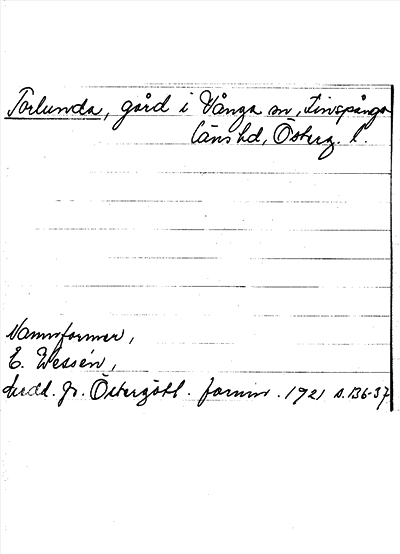 Torlunda, gård i Vånga sn, Finspånga
länshd, Österg. l.
Namnformer,
E. Wessén,
Medd. fr. Östergötl. fornm. 1921 s. 136-37